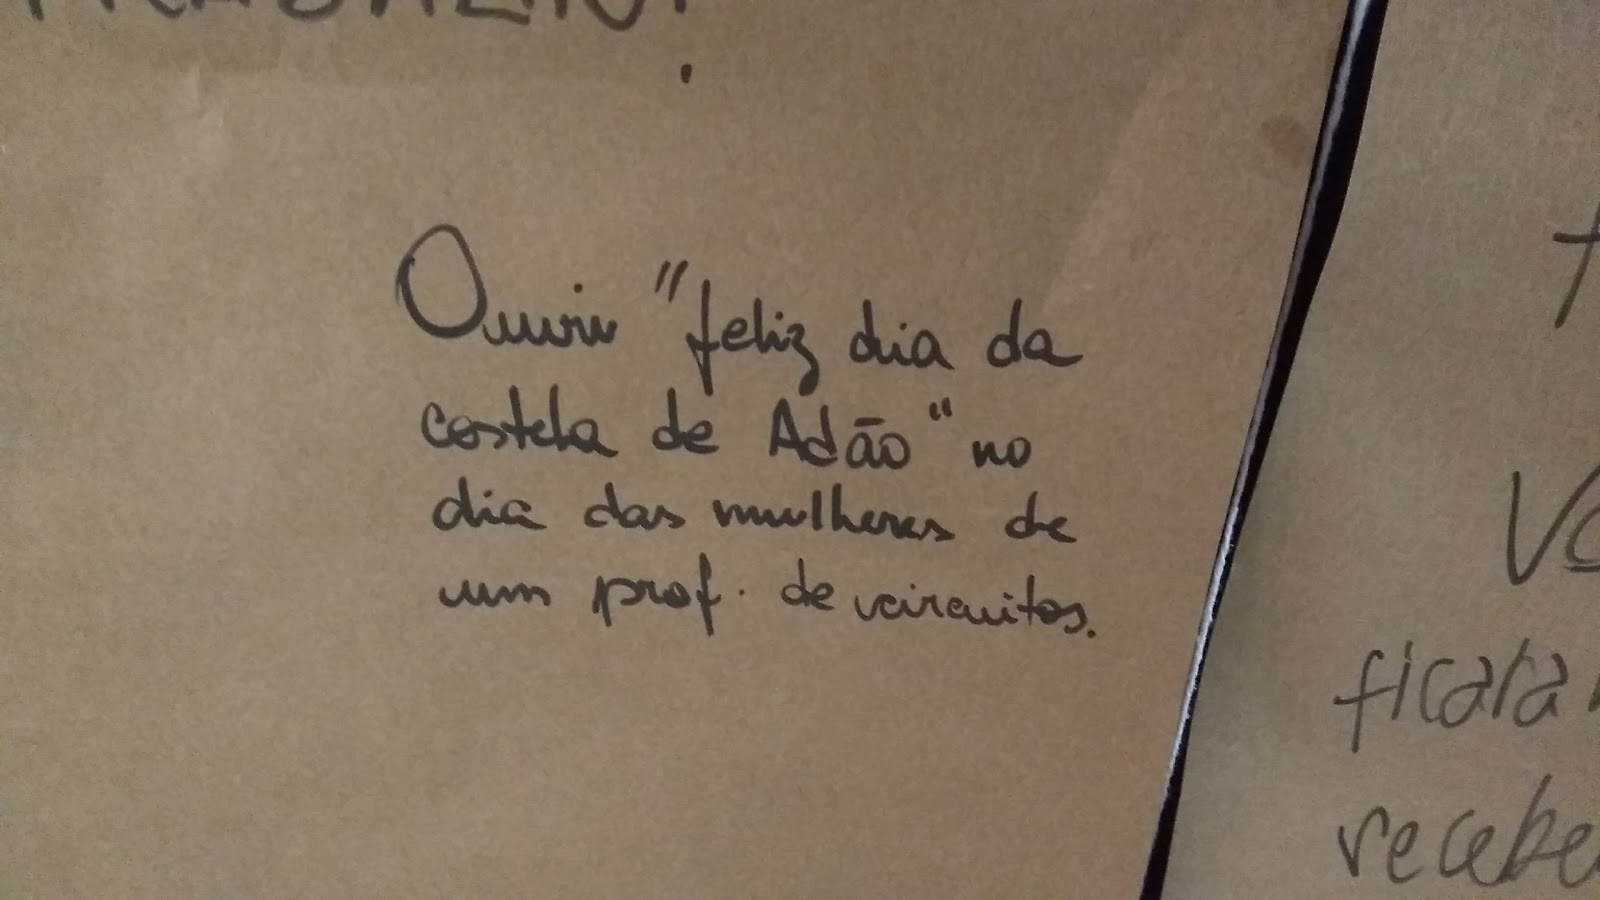 Ouvir "feliz dia da
costela de Adão" no
dia das mulheres de
um prof. de circuitos.
ficara
recebe